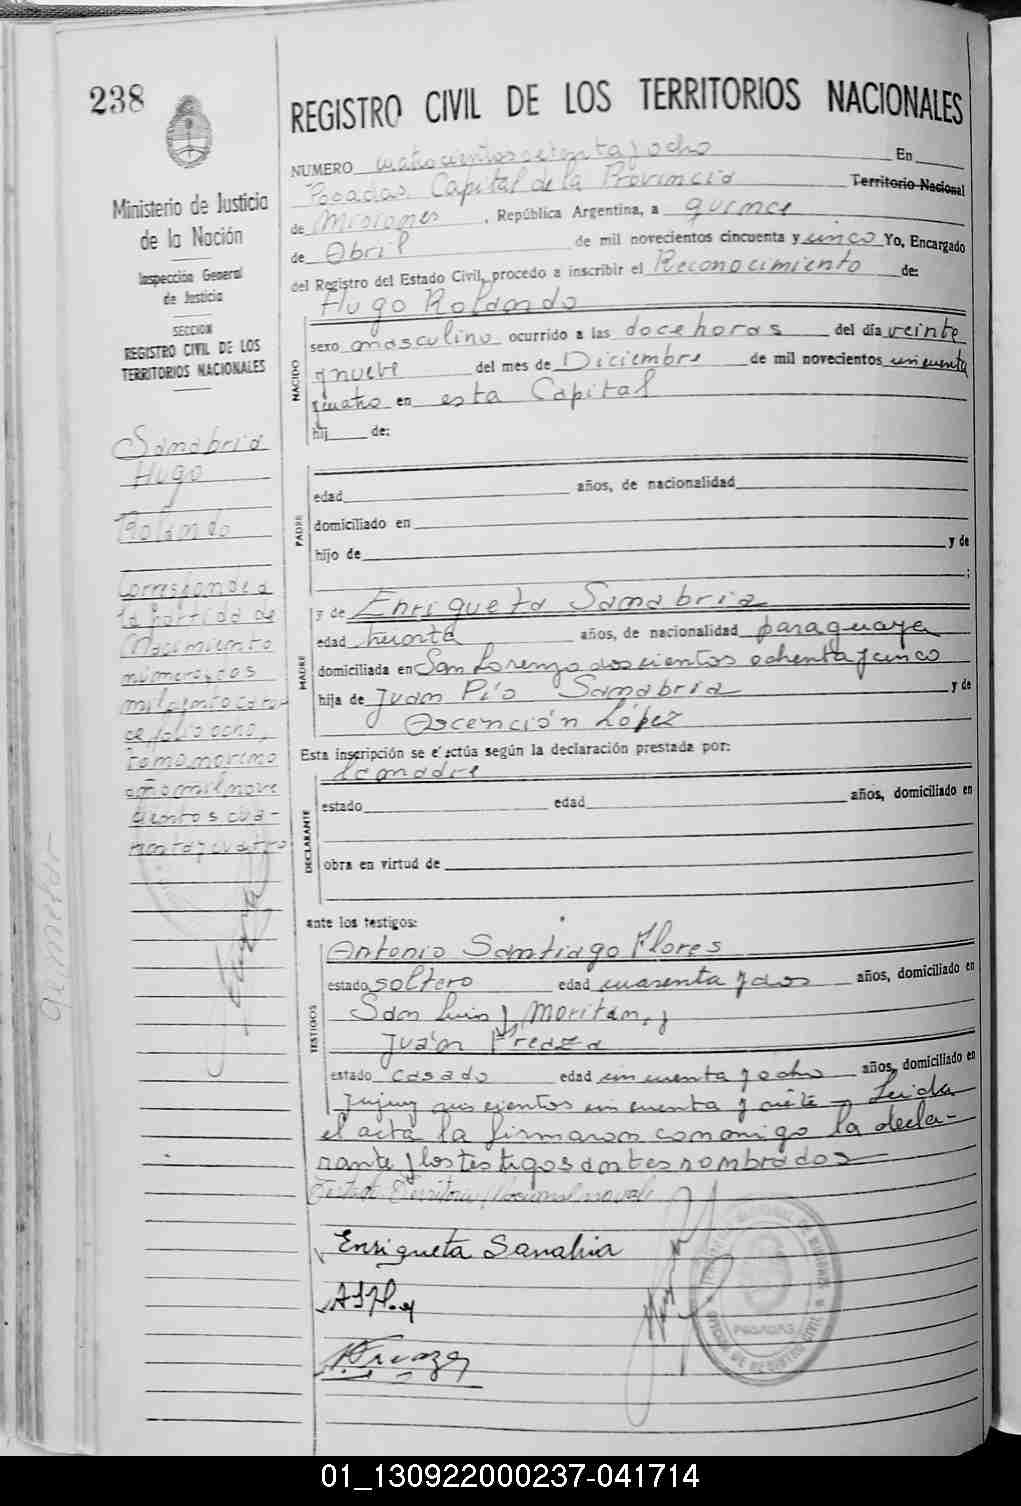 238
REGISTRO CIVIL DE LOS TERRITORIOS NACIONALES
Ministerio de Justicia
de la Nación
Inspección General
de Justicia
SECCION
REGISTRO CIVIL DE LOS
TERRITORIOS NACIONALES
Sanabria
Hugo
Rolando
Corresponde a
la partida de
Nacimiento
número dos
mil ciento cator-
ce, folio ocho,
Tomo noveno
año mil nove
cientos cua-
renta y cuatro
NUMERO cuatrocientos setenta y ocho En
Posadas, Capital de la Provincia Territorio Nacional
de Misiones, República Argentina, a quince
de Abril de mil novecientos cincuenta y cinco Yo, Encargado
del Registro del Estado Civil, procedo a inscribir el Reconocimiento de:
Hugo Rolando
NACIDO
sexo masculino ocurrido a las doce horas del día veinte
y nueve del mes de Diciembre de mil novecientos cuarenta
y cuatro en esta Capital
hij de:
PADRE
edad años, de nacionalidad
domiciliado en
hijo de y de
;
MADRE
y de Enriqueta Sanabria
edad treinta años, de nacionalidad paraguaya
domiciliada en San Lorenzo doscientos ochenta y cinco
hija de Juan Pío Sanabria y de
Ascención López
Esta inscripción se efectúa según la declaración prestada por:
la madre
DECLARANTE
estado edad años, domiciliado en
obra en virtud de
ante los testigos:
TESTIGOS
Antonio Santiago Flores
estado soltero edad cuarenta y dos años, domiciliado en
San Luis y Moritán, y
Juan Freaza
estado casado edad cincuenta y ocho años, domiciliado en
Jujuy quinientos cincuenta y siete = Leida
el acta la firmaron conmigo la decla-
rante y los testigos antes nombrados
Testado: Territorio Nacional no vale
Enriqueta Sanabria
POSADAS
01_130922000237-041714